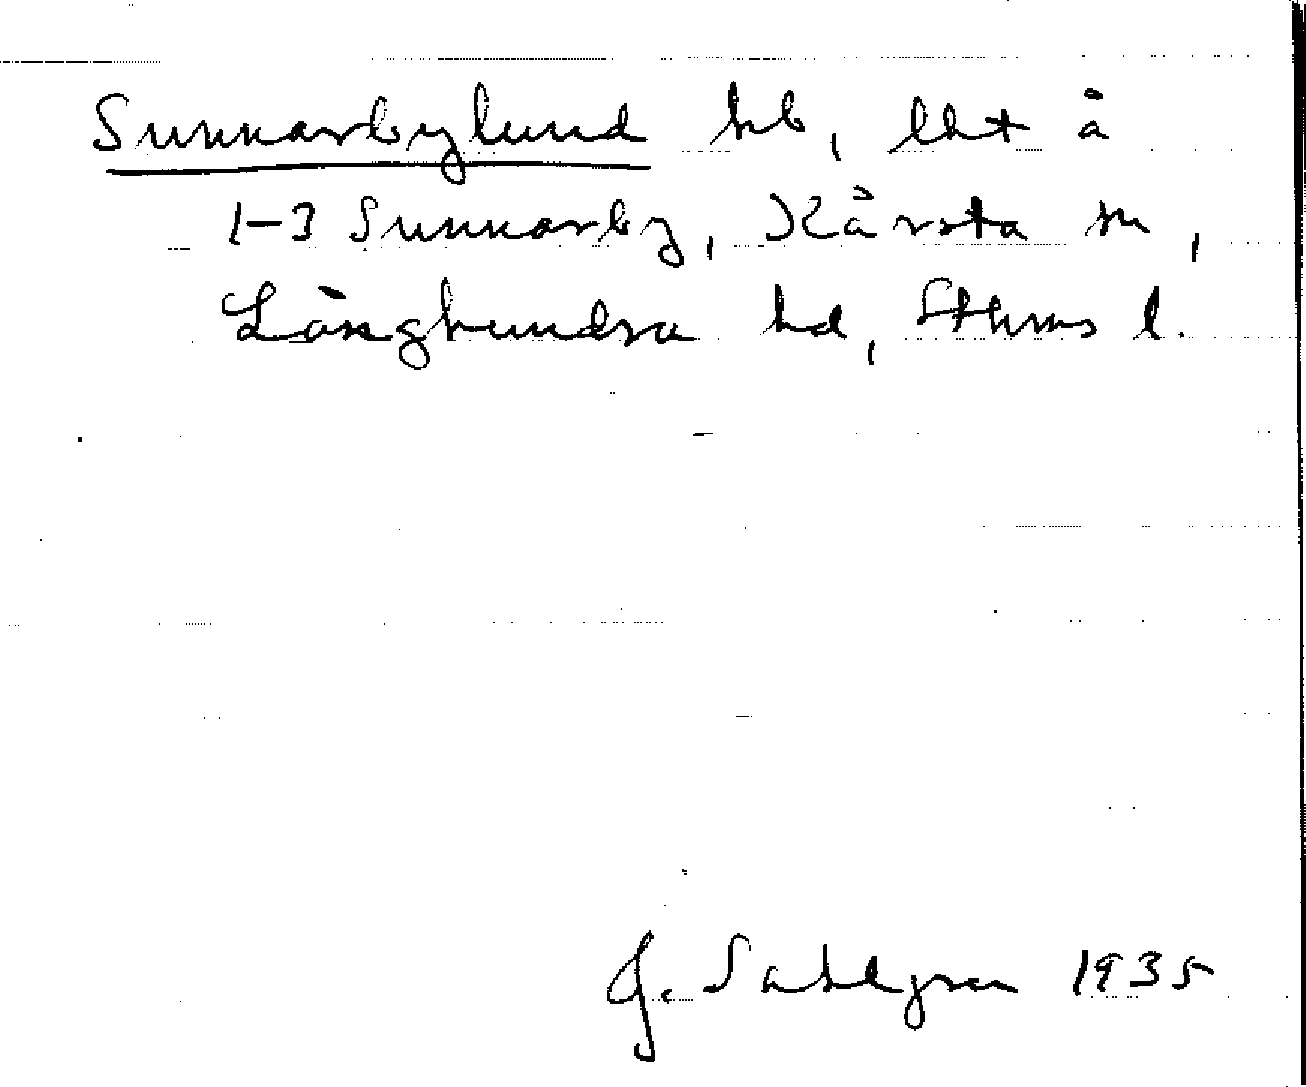 Sunnarbylund hb, lht å
1-3 Sunnarby, Kårsta sn,
Långhundra hd, Sthms l.
J. Sahlgren 1935